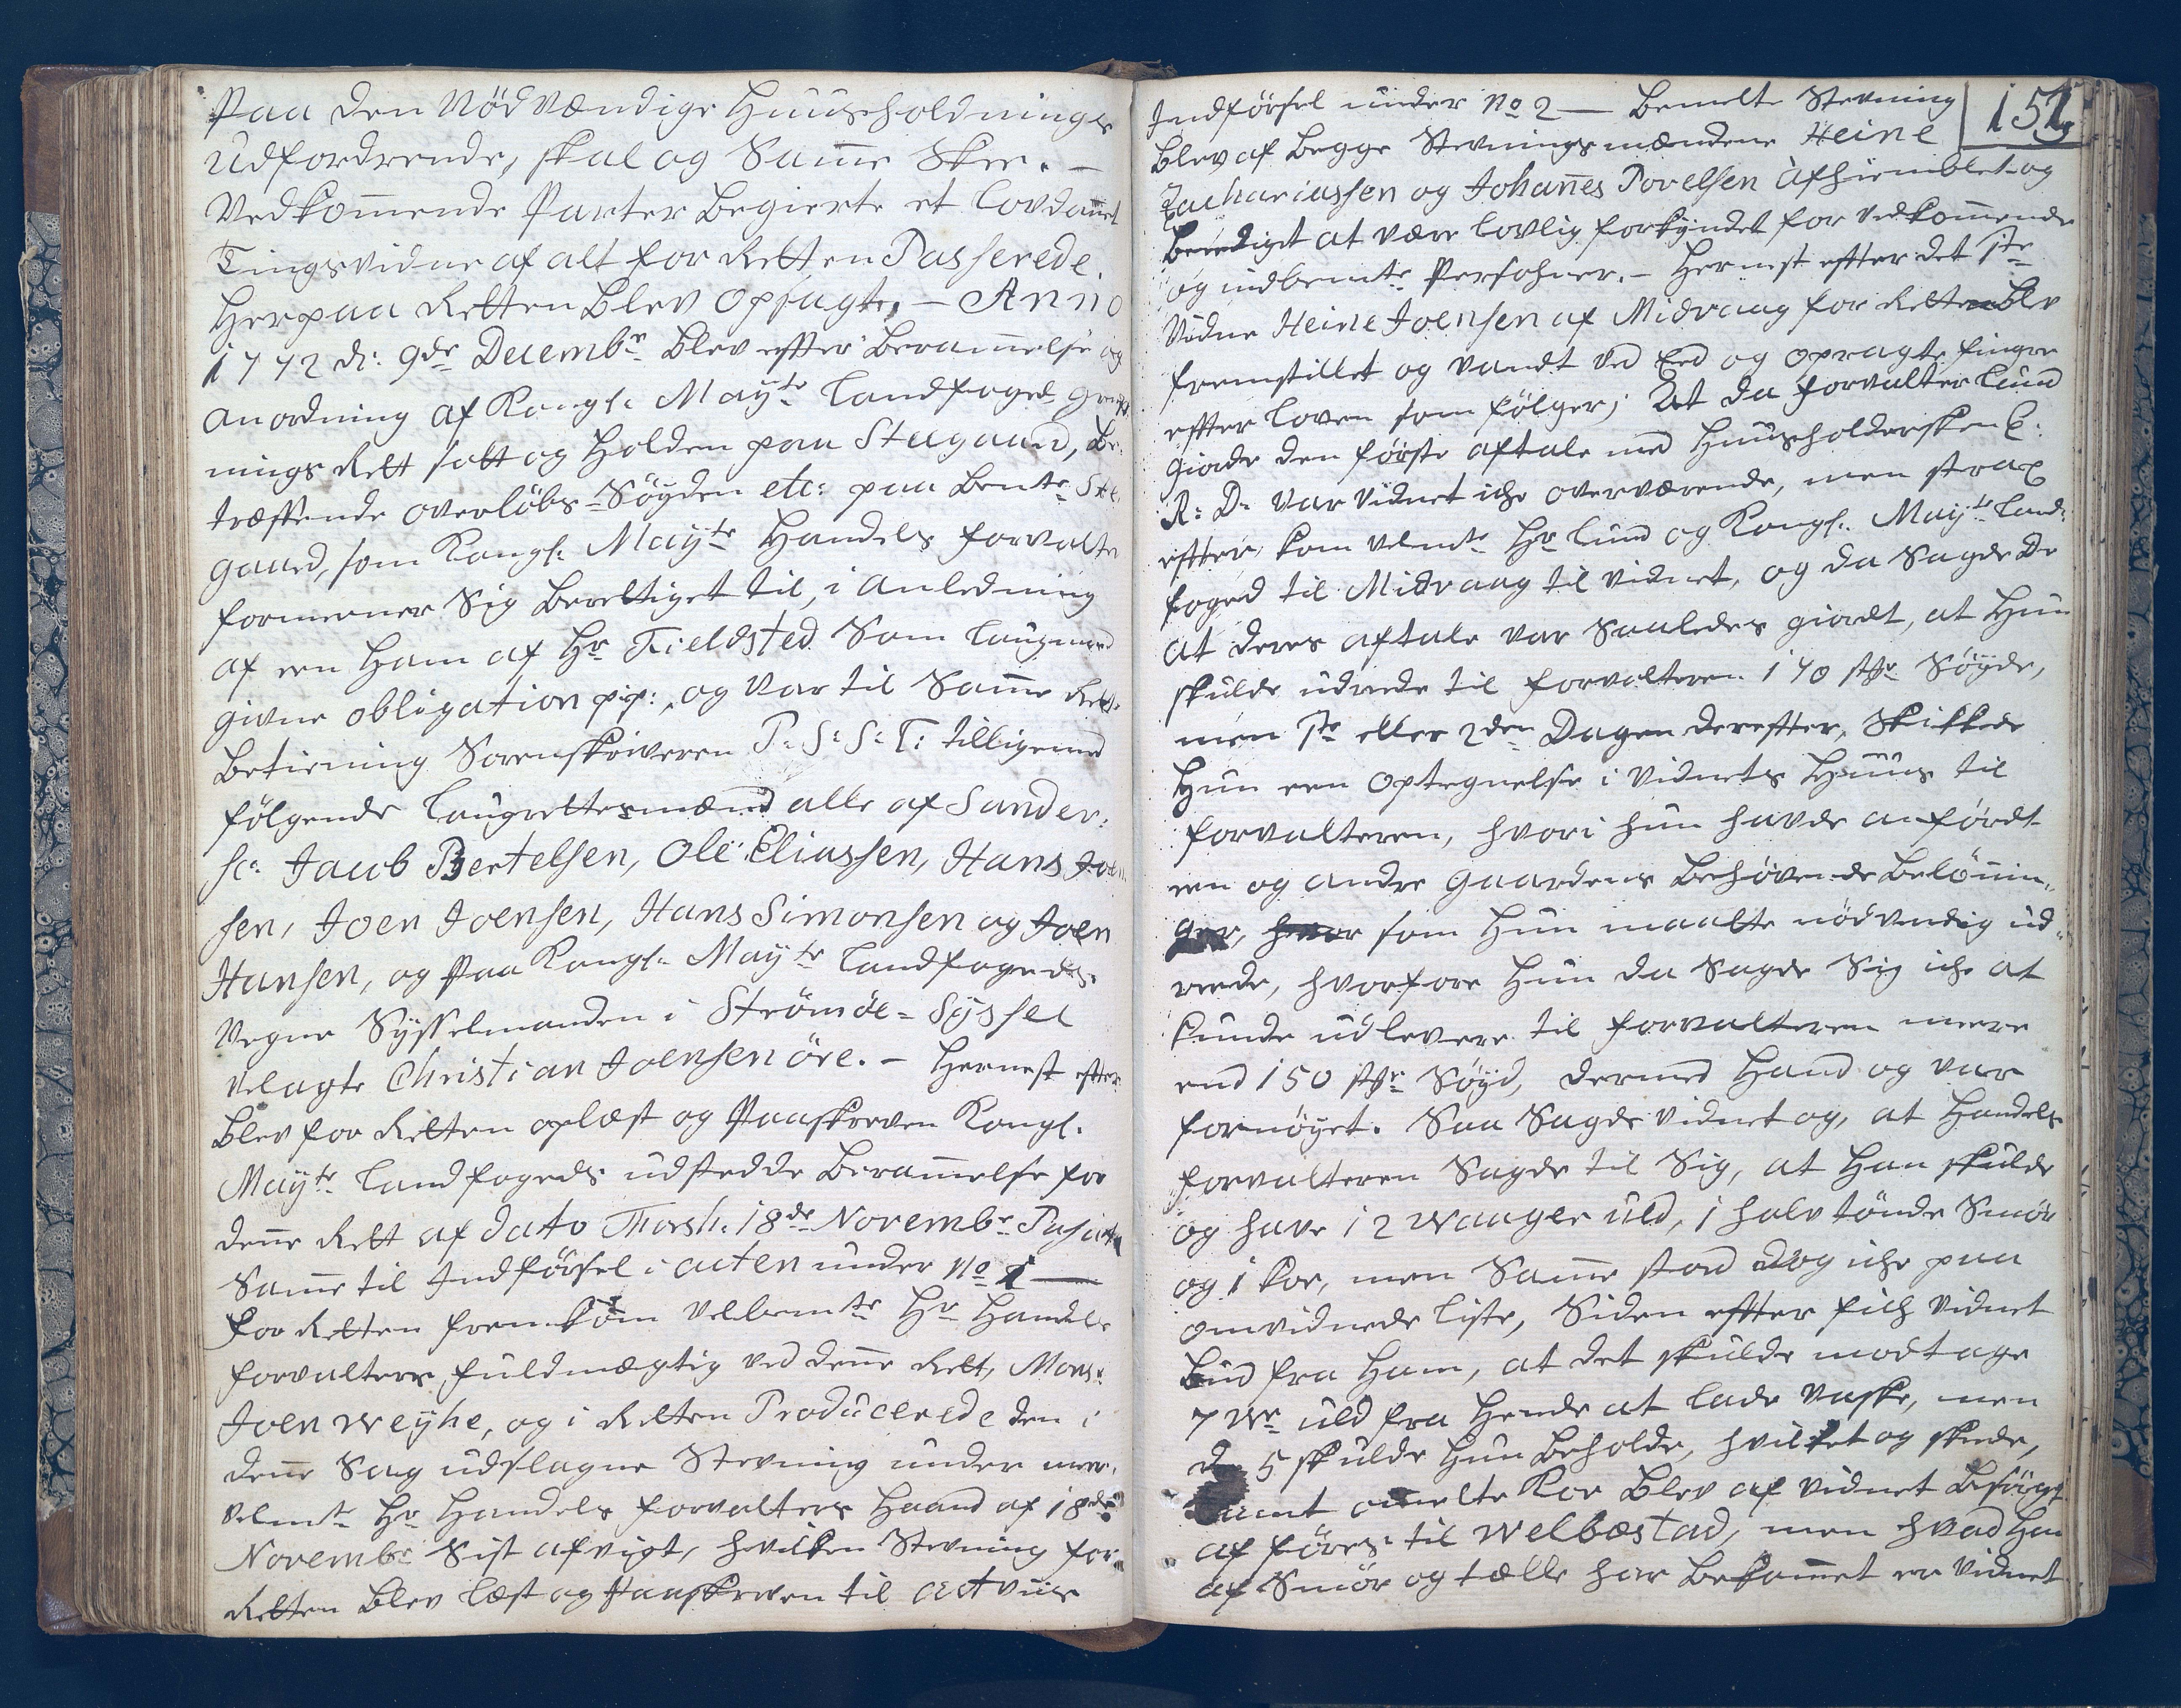 Paa den Nödvændige Huusholdnings
udfordrende, skal og Samme Skee. —
Vedkommende Parter Begierte et lovdannet
Tingsvidne af alt for Retten Passerede.
Herpaa Retten blev opsagt, — Anno
1772 d: 9de Decembr blev effter Berammelse og
anordning af Kongl: Mayts landfoged Grand
nings Rett satt og Holden paa Stegaard, be:
træffende overløbs-Søyden etc: paa Bemte Ste
gaard, som Kongl: Mayts Handels forvalter
formeener Sig Berettiget til, i anledning
af een Ham af Hr Fieldsted Som laugmand
givne obligation pp:, og var til Samme Retts
Betiening Sorenskriveren P: S: S: T: tilligemed
følgende laugrettesmænd alle af Sander:
sc: Jacob Bertelsen, Ole Eliassen, Hans Joen
sen, Joen Joensen, Hans Simonsen og Joen
Hansen, og paa Kongl: Mayts landfogeds
Vegne Sysselmanden i Strömöe-Syssel
Velagte Christian Joensen öre. — Hernest effter
blev for Retten oplæst og Paaskreven Kongl.
Mayts landfogeds udstedde Berammelse for
denne Rett af dato Thorsh: 18de Novembr
Samme til Indførsel i acten under No 1 —
for Retten fremkom velbemte Hr Handels
forvalters fuldmægtig ved denne Rett, Monsr
Joen Weyhe, og i Retten Producerede den i
denne Sag udslagne Stevning under meer,
velmte Hr Handels forvalters Haand af 18de
Novembr Sist afvigt, hvilken Stevning for
Retten blev læst og Paaskreven til act viis
151
Indførsel under No 2 — Bemelte Stevning
blev af Begge Stevningsmændene Heine
Zachariassen og Johannes Povelsen afhiemblet og
Beediget at være lovlig forkyndet for vedkommende
og indbemte Persohner. — Hernest effter det 1ste
Vidne Heine Joensen af Midvaag for Retten blev
fremstillet og vandt ved Eed og opragte fingre
effter loven som følger; At da forvalter Lund
giorde den første aftale med Huusholdersken E:
R: D: var vidnet iche overværende, men strax
effter kom velmte Hr Lund og Kongl: Mayts land:
foged til Midvaag til vidnet, og da Sagde De
at deres aftale var Saaledes giordt, at Hun
skulde udreede til forvalteren 170 stkr Søyde,
men 1ste eller 2den Dagen dereffter, Skikkede
Hun een optegnelse i vidnets Huus til
forvalteren, hvori hun havde anfördt
een og andre gaardens behøvende belönnin,
ger, hvor som Hun maatte nödvendig ud,
reede, hvorfore Hun da Sagde Sig iche at
kunde udlevere til forvalteren meere
end 150 stkr Søyd, dermed Hand og var
fornøyet. Saa Sagde vidnet og, at Handels
forvalteren Sagde til Sig, at Han skulde
og have 12 Waager uld, 1 halv tönde Smör
og 1 Koe, men Samme stod dog iche paa
omvidnede liste, Siden effter fich vidnet
Bud fra Ham, at det skulde modtage
7 Wr uld fra Hende at lade vaske, men
de 5 skulde Hun Beholde, hvilket og skede,
Samt omelte Koe blev af vidnet besørget
af føres til Welbæstad, men hvad Han
af Smör og tælle har bekommet er vidnet